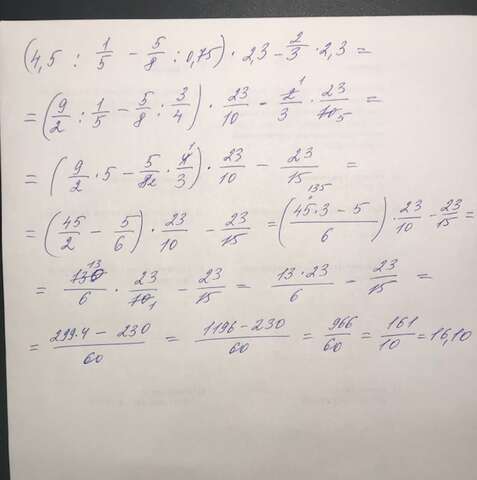 (4,5 : 1/5 - 5/8 : 0,75) · 2,3 - 2/3 · 2,3 =
= (9/2 : 1/5 - 5/8 : 3/4) · 23/10 - 2 1/3 · 23/10 5 =
= (9/2 · 5 - 5/8 2 · 4 1/3) · 23/10 - 23/15 =
= (45/2 - 5/6) · 23/10 - 23/15 = (45·3 - 5 135/6) · 23/10 - 23/15 =
= 130 13/6 · 23/10 1 - 23/15 = 13·23/6 - 23/15 =
= 299·4 - 230/60 = 1196 - 230/60 = 966/60 = 161/10 = 16,10